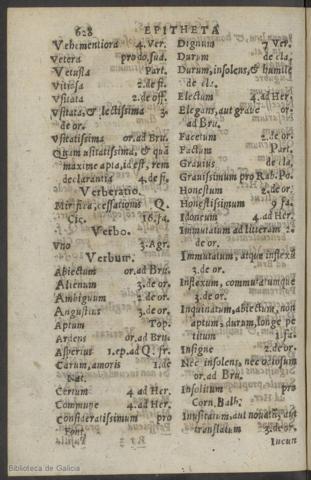 628 EPITHETA
Vehementiora 4. Ver.
Vetera pro do. sua.
Vetusta Part.
Vitiosa 2. de fi.
Vsitata 2. de off.
Vsitata, & lectissima 3.
de or.
Vsitatissima or. ad Bru.
Quam usitatissima, & quā
maxime apta, id est, rem
declarantia 4. de fi.
Verberatio.
Mirifica, cessationis Q.
Cic. 16. fa.
Verbo.
Vno 3. Agr.
Verbum.
Abiectum or. ad Bru.
Alienum 3. de or.
Ambiguum 2. de or.
Angustius 3. de or.
Aptum Top.
Ardens or. ad Bru.
Asperius 1. ep. ad Q. fr.
Carum, amoris 1. de
Nat.
Certum 4. ad Her.
Commune 4. ad Her.
Consideratissimum pro
Font.
Dignum 7 Ver.
Durum de cla.
Durum, insolens, & humile
de cla.
Electum 4. ad Her.
Elegans, aut graue or-
ad Bru.
Facetum 2. de or.
Factum Part.
Grauius de cla.
Grauissimum pro Rab. Po.
Honestum 2. de or.
Honestissimum 9 fa.
Idoneum 4. ad Her.
Immutatum ad litteram 2.
de or.
Immutatum, atque inflexū
3. de or.
Inflexum, commutatumque
3. de or.
Inquinatum, abiectum, non
aptum, durum, longe pe
titum 1. fa.
Insigne 2. de or.
Nec insolens, nec odiosum
or. ad Bru.
Insolitum pro
Corn. Balb.
Inusitatum, aut nouatū, aut
translatum 3. de or.
Iucun
Biblioteca de Galicia